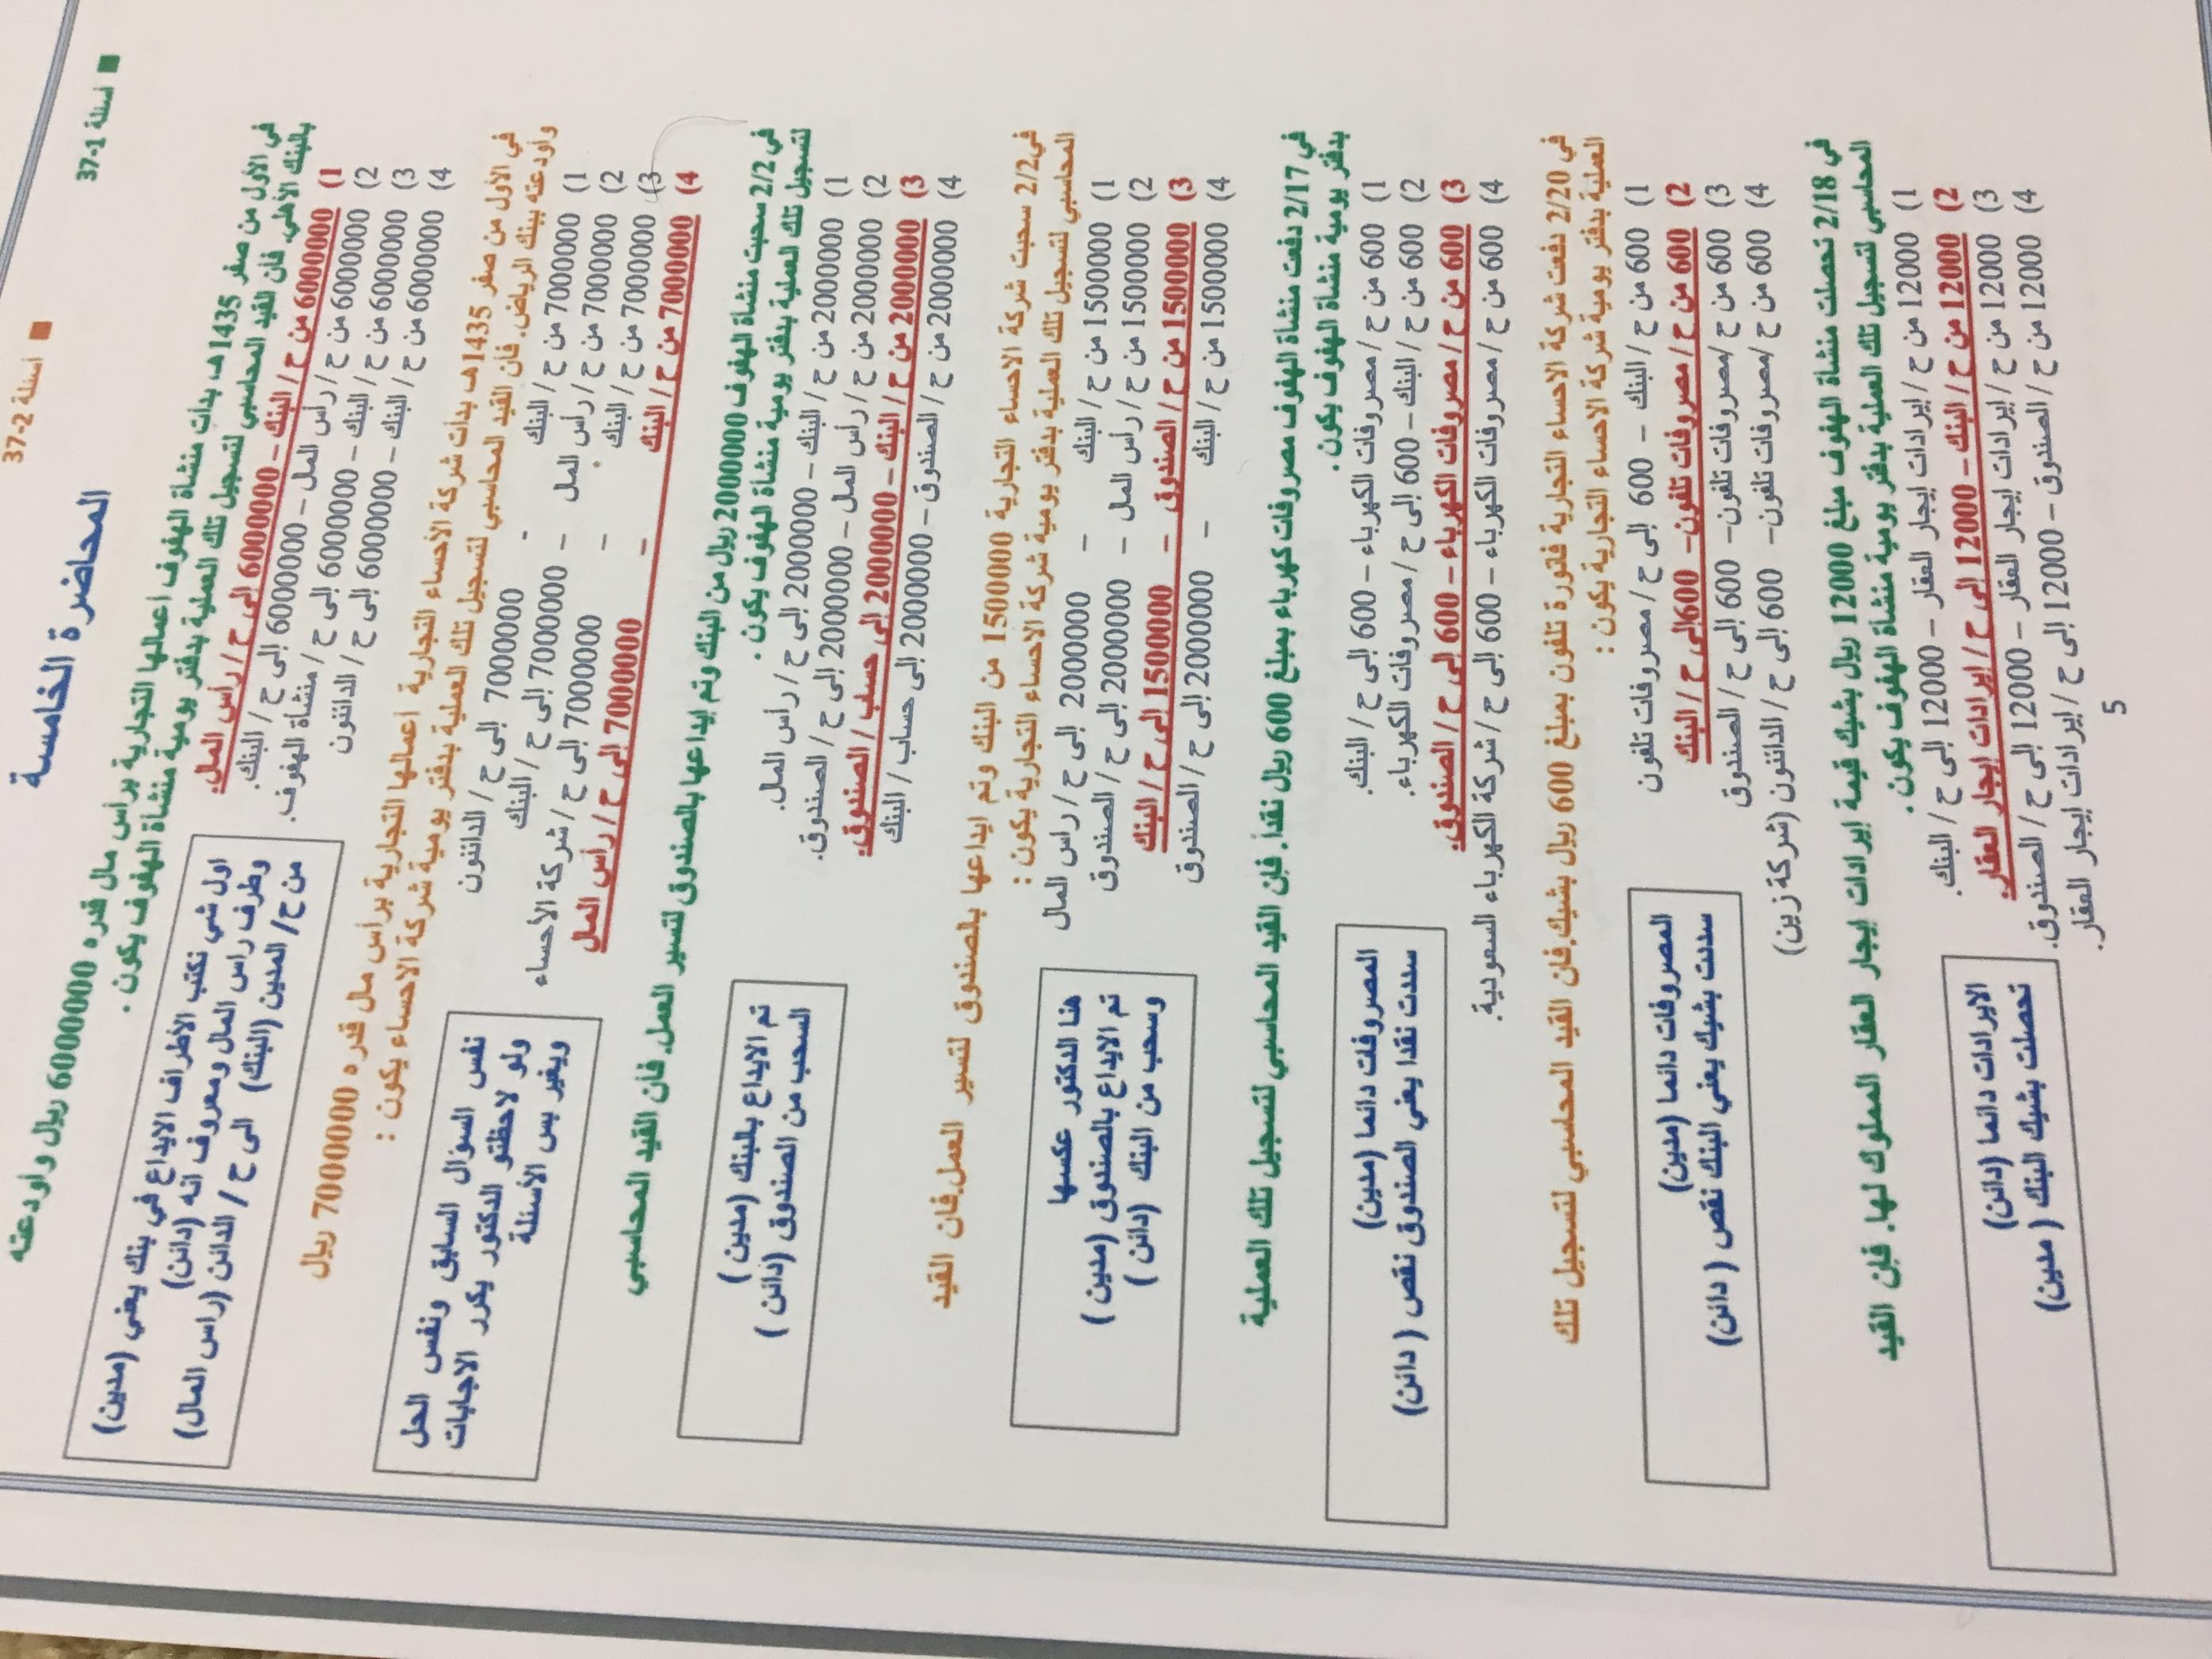 المحاضرة الخامسة
■ اسئلة 2-37
■ اسئلة 1-37
في الأول من صفر 1435هـ بدأت منشأة الهفوف اعمالها التجارية برأس مال قدره 6000000 ريال واودعته
بالبنك الأهلي. فان القيد المحاسبي لتسجيل تلك العملية بدفتر يومية منشأة الهفوف يكون .
1) 6000000 من ح / البنك – 6000000 إلى ح / رأس المال.
2) 6000000 من ح / رأس المال – 6000000 إلى ح / البنك.
3) 6000000 من ح / البنك – 6000000 إلى ح / منشأة الهفوف.
4) 6000000 من ح / البنك – 6000000 إلى ح / الدائنون
اول شي نكتب الأطراف الايداع في بنك يعني (مدين)
وطرف راس المال ومعروف انه (دائن)
من ح/ المدين (البنك) الى ح / الدائن (راس المال)
في الأول من صفر 1435هـ بدأت شركة الأحساء التجارية اعمالها التجارية برأس مال قدره 7000000 ريال
وأودعته ببنك الرياض. فأن القيد المحاسبي لتسجيل تلك العملية بدفتر يومية شركة الاحساء يكون :
1) 7000000 من ح / البنك - 7000000 إلى ح / الدائنون
2) 7000000 من ح / رأس المال – 7000000 إلى ح / البنك
3) 7000000 من ح / البنك – 7000000 إلى ح / شركة الأحساء
4) 7000000 من ح / البنك – 7000000 إلى ح / رأس المال
نفس السوال السابق ونفس الحل
ولو لاحظتو الدكتور يكرر الاجابات
ويغير بس الأسئلة
في 2/2 سحبت منشأة الهفوف 2000000 ريال من البنك وتم إيداعها بالصندوق لتسيير العمل. فان القيد المحاسبي
لتسجيل تلك العملية بدفتر يومية منشأة الهفوف يكون .
1) 2000000 من ح / البنك – 2000000 إلى ح / رأس المال.
2) 2000000 من ح / رأس المال – 2000000 إلى ح / الصندوق.
3) 2000000 من ح / البنك – 2000000 إلى حساب / الصندوق.
4) 2000000 من ح / الصندوق – 2000000 إلى حساب / البنك
تم الايداع بالبنك (مدين )
السحب من الصندوق (دائن )
في 2/2 سحبت شركة الاحساء التجارية 1500000 من البنك وتم ايداعها بالصندوق لتسير العمل.فان القيد
المحاسبي لتسجيل تلك العملية بدفتر يومية شركة الاحساء التجارية يكون :
1) 1500000 من ح / البنك – 2000000 إلى ح / راس المال
2) 1500000 من ح / رأس المال – 2000000 إلى ح / الصندوق
3) 1500000 من ح / الصندوق – 1500000 إلى ح / البنك
4) 1500000 من ح / البنك – 2000000 إلى ح / الصندوق
هنا الدكتور عكسها
تم الايداع بالصندوق (مدين )
وسحب من البنك (دائن )
في 2/17 دفعت منشأة الهفوف مصروفات كهرباء بمبلغ 600 ريال نقداً. فإن القيد المحاسبي لتسجيل تلك العملية
بدفتر يومية منشأة الهفوف يكون .
1) 600 من ح / مصروفات الكهرباء – 600 إلى ح / البنك.
2) 600 من ح / البنك – 600 إلى ح / مصروفات الكهرباء.
3) 600 من ح / مصروفات الكهرباء – 600 إلى ح / الصندوق.
4) 600 من ح / مصروفات الكهرباء – 600 إلى ح / شركة الكهرباء السعودية.
المصروفات دائما (مدين)
سددت نقدا يعني الصندوق نقص ( دائن)
في 2/20 دفعت شركة الاحساء التجارية فتورة تلفون بمبلغ 600 ريال بشيك.فان القيد المحاسبي لتسجيل تلك
العملية بدفتر يومية شركة الاحساء التجارية يكون :
1) 600 من ح / البنك – 600 إلى ح / مصروفات تلفون
2) 600 من ح / مصروفات تلفون– 600إلى ح / البنك
3) 600 من ح /مصروفات تلفون– 600 إلى ح / الصندوق
4) 600 من ح /مصروفات تلفون– 600 إلى ح / الدائنون (شركة زين)
المصروفات دائما (مدين)
سددت بشيك يعني البنك نقص ( دائن)
في 2/18 تحصلت منشأة الهفوف مبلغ 12000 ريال بشيك قيمة إيرادات إيجار العقار المملوك لها. فإن القيد
المحاسبي لتسجيل تلك العملية بدفتر يومية منشأة الهفوف يكون .
1) 12000 من ح / إيرادات إيجار العقار – 12000 إلى ح / البنك.
2) 12000 من ح / البنك – 12000 إلى ح / إيرادات إيجار العقار.
3) 12000 من ح / إيرادات إيجار العقار – 12000 إلى ح / الصندوق.
4) 12000 من ح / الصندوق – 12000 إلى ح / إيرادات إيجار العقار.
الايرادات دائما (دائن)
تحصلت بشيك البنك ( مدين)
5